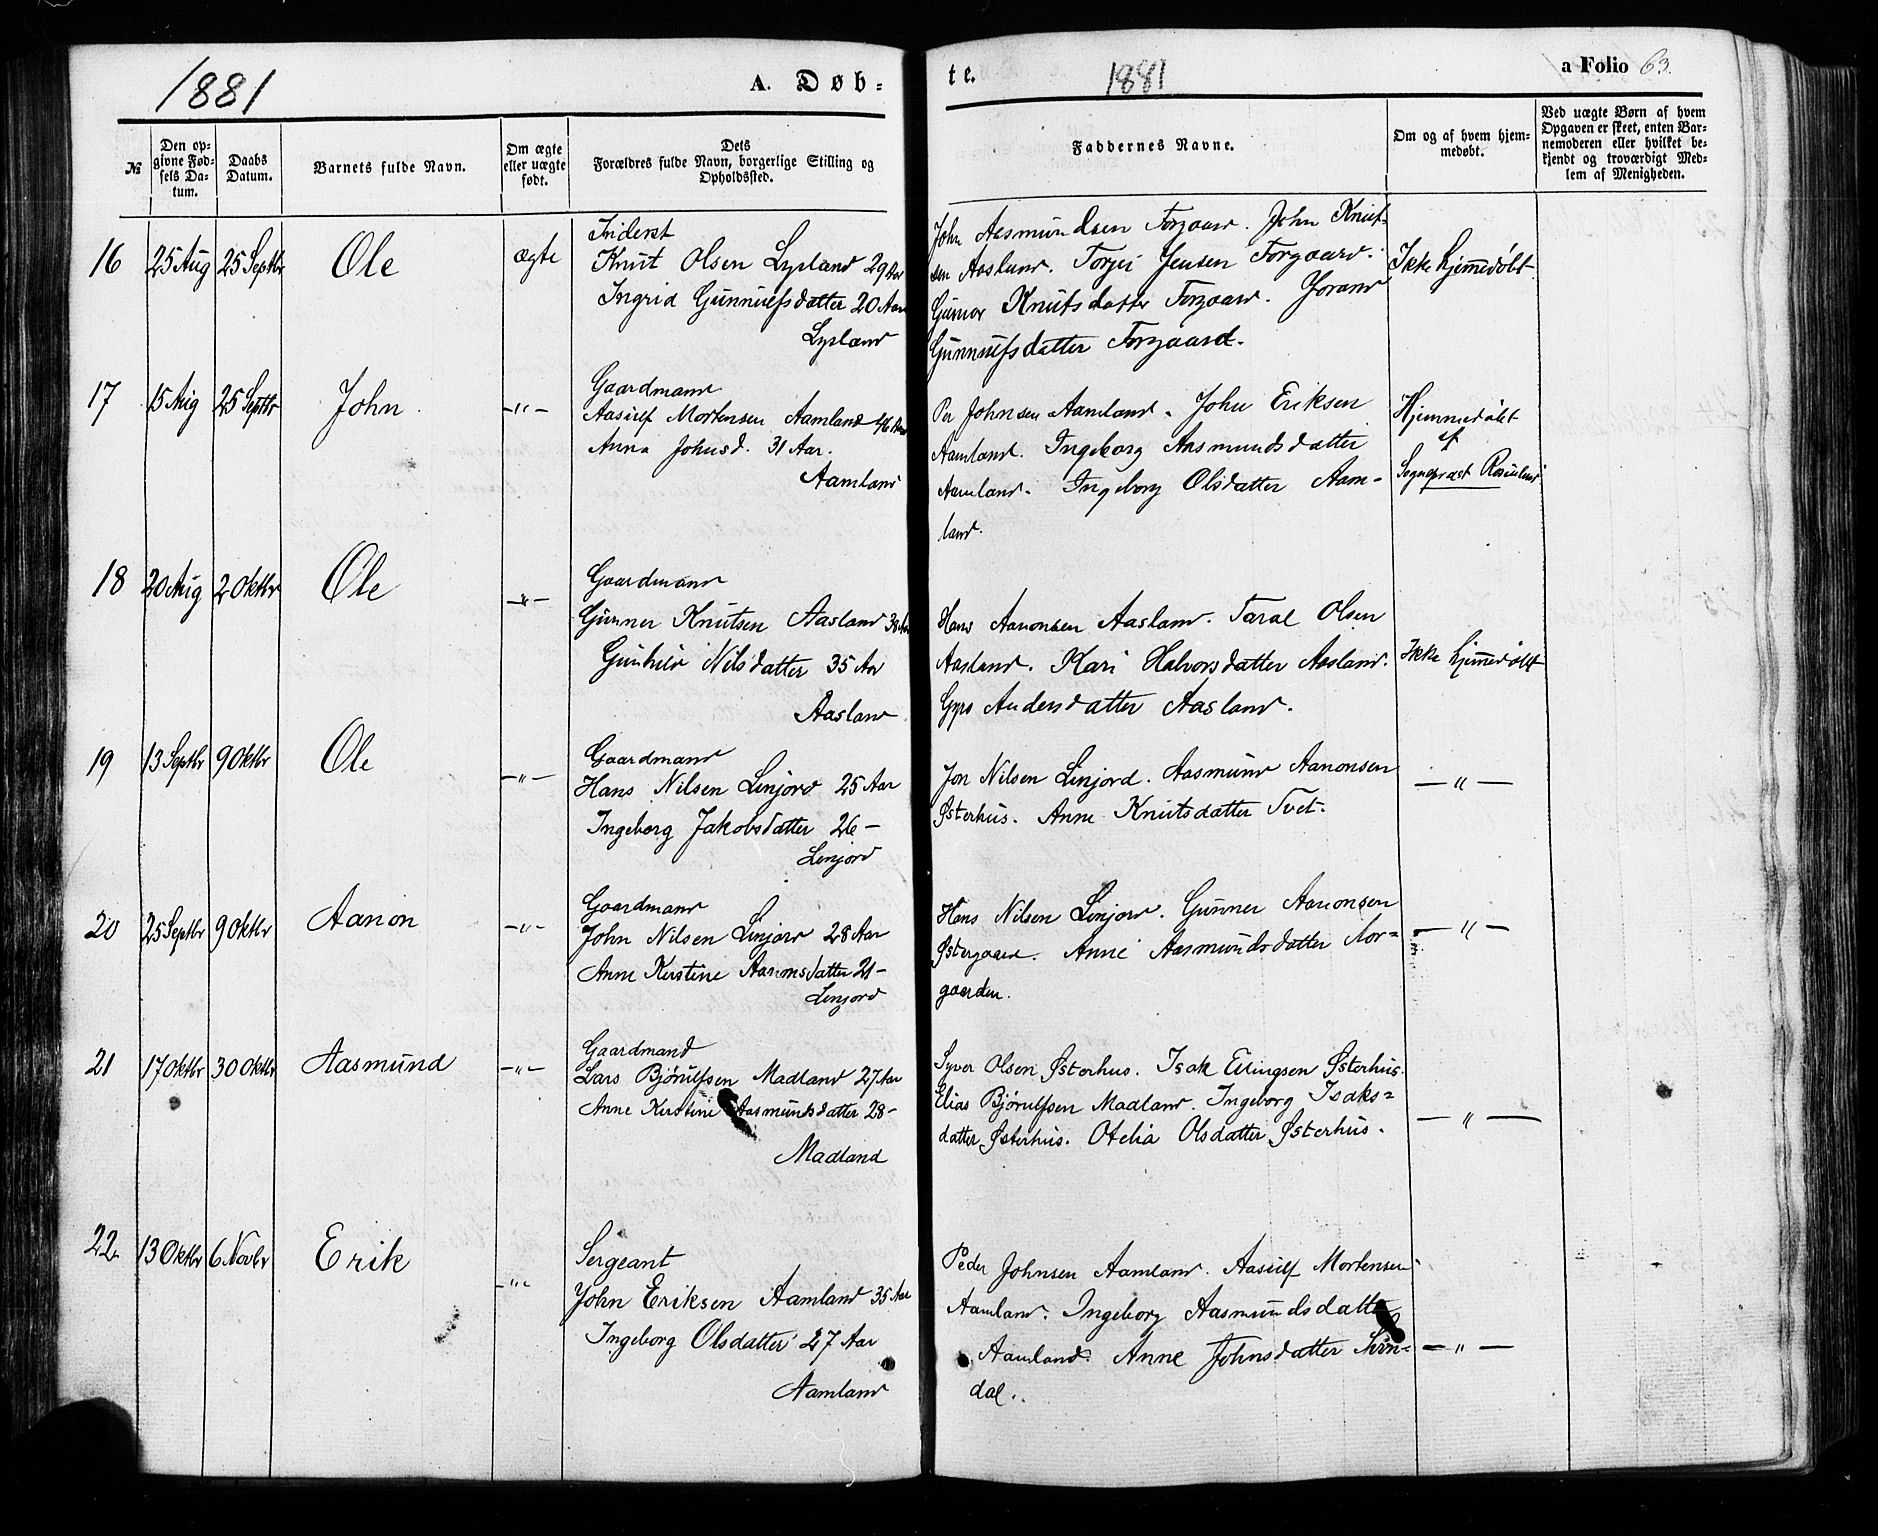 1881
A. Døb-
№
Den op-
givne Fød-
sels Da-
tum.
Daabs
Datum.
Barnets fulde Navn.
Om ægte
eller uægte
født.
Dets
Forældres fulde Navn, borgerlige Stilling og
Opholdssted.
16
25 Aug
25 Septbr
Ole
ægte
Inderst
Knut Olsen Lysland 29 Aar
Ingrid Gunnulfsdatter 20 Aar
Lysland
17
15 Aug
25 Septbr
John
-"-
Gaardmand
Aasulf Mortensen Aamland 46 Aar
Anna Johnsd. 31 Aar.
Aamland
18
20 Aug
2 Oktbr
Ole
-"-
Gaardmand
Gunner Knutsen Aasland Aar
Gunhild Nilsdatter 35 Aar
Aasland
19
13 Septbr
9 Oktbr
Ole
-"-
Gaardmand
Hans Nilsen Linjord 25 Aar
Ingeborg Jakobsdatter 26 -
Linjord
20
25 Septbr
9 Oktbr
Aanon
-"-
Gaardmand
John Nilsen Linjord 28 Aar
Anne Kerstine Aanonsdatter 21 -
Linjord
21
17 Oktbr
30 Oktbr
Aasmund
-"-
Gaardmand
Lars Bjørulfsen Madland 27 Aar
Anne Kerstine Aasmundsdatter 28 -
Madland
22
13 Oktbr
6 Novbr
Erik
-"-
Sergeant
John Eriksen Aamland 35 Aar
Ingeborg Olsdatter 27 Aar
Aamland
te.
1881
a Folio 63.
Faddernes Navne.
Om og af hvem hjem-
medøbt.
Ved uægte Børn af hvem
Opgaven er skeet, enten Bar-
nemoderen eller hvilket be-
kjendt og troværdigt Med-
lem af Menigheden.
John Aasmundsen Torgaard. John Knut-
sen Aasland. Torjei Jensen Torgaard.
Gunvor Knutsdatter Torgaard. Jorand
Gunnulfsdatter Torgaard.
Ikke hjemmedøbt
Per Johnsen Aamland. John Eriksen
Aamland. Ingeborg Aasmundsdatter
Aamland. Ingeborg Olsdatter Aam-
land.
Hjemmedøbt
af
Sogneprest
Hans Aanonsen Aasland. Taral Olsen
Aasland. Kari Halvorsdatter Aasland.
Gyro Andersdatter Aasland.
Ikke hjemmedøbt
Jon Nilsen Linjord. Aasmund Aanonsen
Østerhus. Anne Knutsdatter Tvet.
-"-
Hans Nilsen Linjord. Gunner Aanonsen
Østergaard. Anne Aasmundsdatter Nor-
gaarden.
-"-
Syver Olsen Østerhus. Isak Ellingsen Østerhus.
Elias Bjørulfsen Madland. Ingeborg Isaks-
datter Østerhus. Otelia Olsdatter Østerhus.
-"-
Peder Johnsen Aamland. Aasulf Mortensen
Aamland. Ingeborg Aasmundsdatter
Aamland. Anne Johnsdatter
dal.
-"-